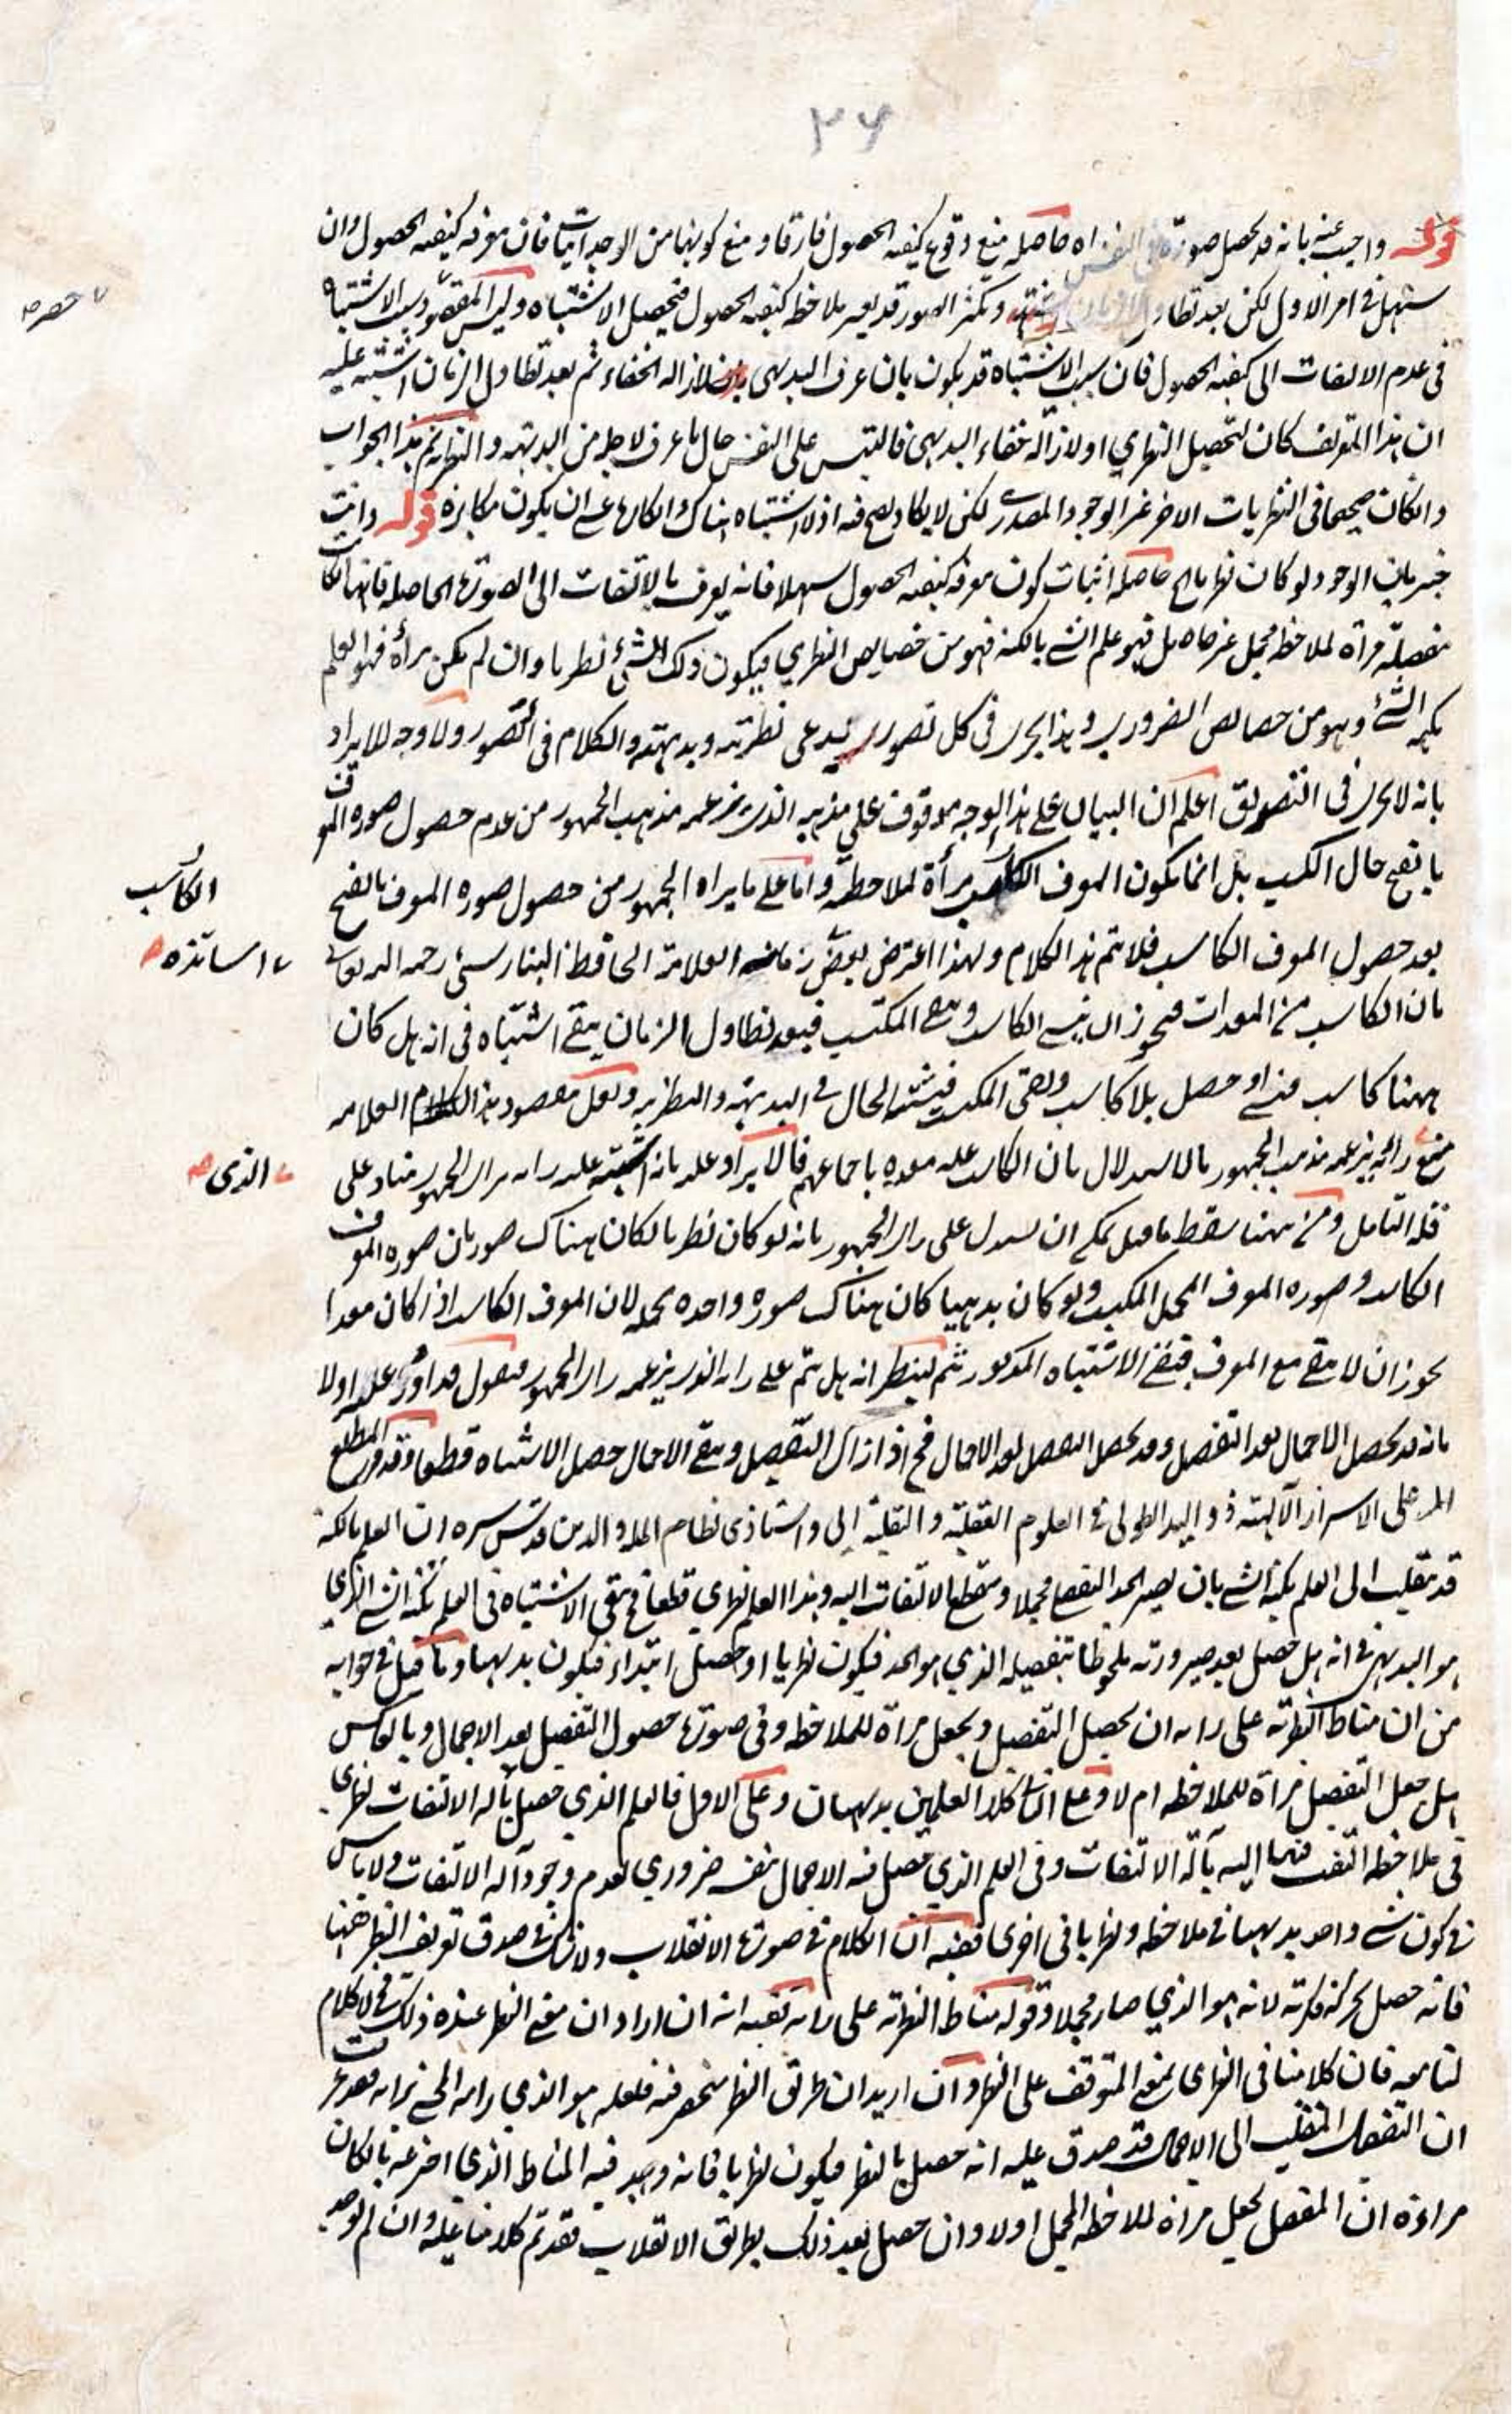 ٢٦
قوله واجيب عنه بانه قد يحصل صورة في النفس اه حاصله منع وقوع كيفية الحصول فارقا ومنع كونها من الوجدانيات فان معرفة كيفية الحصول وان
سهل في امر الاول لكن بعد تطاول وتكثر الصور قد يعسر ملاحظة كيفية الحصول فيحصل الاشتباه وليس المقصود سبب الاشتباه
حصر صح
في عدم الالتفات الى كيفية الحصول فان سبب الاشتباه قد يكون بان عرف البديهي لازالة الخفاء ثم بعد تطاول الزمان اشتبه عليه
ان هذا التعريف كان لتحصيل النظري او لازالة خفاء البديهي فالتبس على النفس حال ما عرف لاجله من البديهة والنظرية ثم هذا الجواب
وان كان صحيحا في النظريات الاخر غير الوجود المصدري لكن لا يكاد يصح فيه اذ لا اشتباه هناك وانكاره عسى ان يكون مكابرة قوله وانت
خبير بان الوجود لو كان نظريا اه حاصله اثبات كون معرفة كيفية الحصول سهلا فانه يعرف بالالتفات الى الصورة الحاصلة فانها ان كا
مفصلة مرآة لملاحظة مجمل غير حاصل فهو علم الشئ بالكنه فهو من خصايص النظري فيكون ذلك الشئ نظريا وان لم يكن مرآة فهو العلم
بكنه الشئ وهو من خصايص الضروري وهذا يجري في كل تصور يدعى نظريته وبديهته والكلام في التصور ولا وجه للايراد
بانه لا يجري في التصديق اعلم ان البيان على هذا الوجه موقوف على مذهبه الذي يزعمه مذهب الجمهور من عدم حصول صورة المعرف
بالفتح حال الكسب بل انما يكون المعرف الكاسب مرآة لملاحظته واما على ما يراه الجمهور من حصول صورة المعرف بالفتح
الكاسب
بعد حصول المعرف الكاسب فلا يتم هذا الكلام ولهذا اعترض بعض زمانه العلامة الحافظ البنارسي رحمه الله تعالى
اساتذه صح
بان الكاسب من المعدات فيجوز ان ينسى الكاسب ويبقى المكتسب فبعد تطاول الزمان يبقى اشتباه في انه هل كان
ههنا كاسب فنسي او حصل بلا كاسب وبقي المكتسب فيشتبه الحال في البديهية والنظرية ولعل مقصود هذا العلامة
منع رأيه يزعمه مذهب الجمهور بالاستدلال بان الكاسب علة معدة باجماعهم فالايراد عليه بانه اشتبه عليه رايه براي الجمهور مناد على
الذي صح
قلة التأمل ومن ههنا سقط ما قيل يمكن ان يستدل على راي الجمهور بانه لو كان نظريا لكان هناك صورتان صورة المعرف
الكاسب وصورة المعرف المجمل المكتسب ولو كان بديهيا كان هناك صورة واحدة مجملة لان المعرف الكاسب اذا كان معدا
يجوز ان لا يبقى مع المعرف فيبقى الاشتباه المذكور ثم لينظر انه هل يتم على رايه الذي يزعمه راي الجمهور فنقول قد اورد عليه اولا
بانه قد يحصل الاجمال بعد التفصيل وقد يحصل التفصيل بعد الاجمال فح اذا زال التفصيل وبقي الاجمال حصل الاشتباه قطعا وقد قرر المطلع
على الاسرار الالهية ذو اليد الطولى في العلوم العقلية والنقلية ابي واستاذي نظام الملة والدين قدس سره ان العلم بالكنه
قد ينقلب الى العلم بكنه الشئ بان يصير الحد التفصيلي مجملا وينقطع الالتفات اليه وهذا العلم نظري قطعا فح يبقى الاشتباه في العلم بكنه الشئ الذي
هو البديهي في انه هل حصل بعد صيرورته ملحوظا بتفصيله الذي هو الحد فيكون نظريا او حصل ابتداء فيكون بديهيا وما قيل في جوابه
من ان مناط النظرية على رايه ان يحصل التفصيل ويجعل مرآة للملاحظة وفي صورة حصول التفصيل بعد الاجمال وبالعكس
هل جعل التفصيل مرآة للملاحظة ام لا وعلى الثاني كلا العلمين بديهيان وعلى الاول فالعلم الذي حصل بآلة الالتفات نظري
في ملاحظة التفت فيها اليه بآلة الالتفات وفي العلم الذي حصل فيه الاجمال بنفسه ضروري لعدم وجود آلة الالتفات ولا باس
في كون شئ واحد بديهيا في ملاحظة ونظريا في اخرى ففيه ان الكلام في صورة الانقلاب ولا شك في صدق تعريف النظر ههنا
فانه حصل بحركة فكرية لانه هو الذي صار مجملا وقوله مناط النظرية على رايه ففيه انه ان اراد ان معنى النظر عنده ذلك فح لا كلام
لنا معه فان كلامنا في النظري بمعنى المتوقف على النظر وان اريد ان طريق النظر منحصر فيه فلعله هو الذي
ان التفصيل المنقلب الى الاجمال قد صدق عليه انه حصل بالنظر فيكون نظريا فانه وجد فيه المناط الذي اخترعه بان كان
مراده ان المفصل يجعل مرآة للاحظة المجمل اولا وان حصل بعد ذلك بطريق الانقلاب فقد تم كلامنا عليه وان لم يوجد